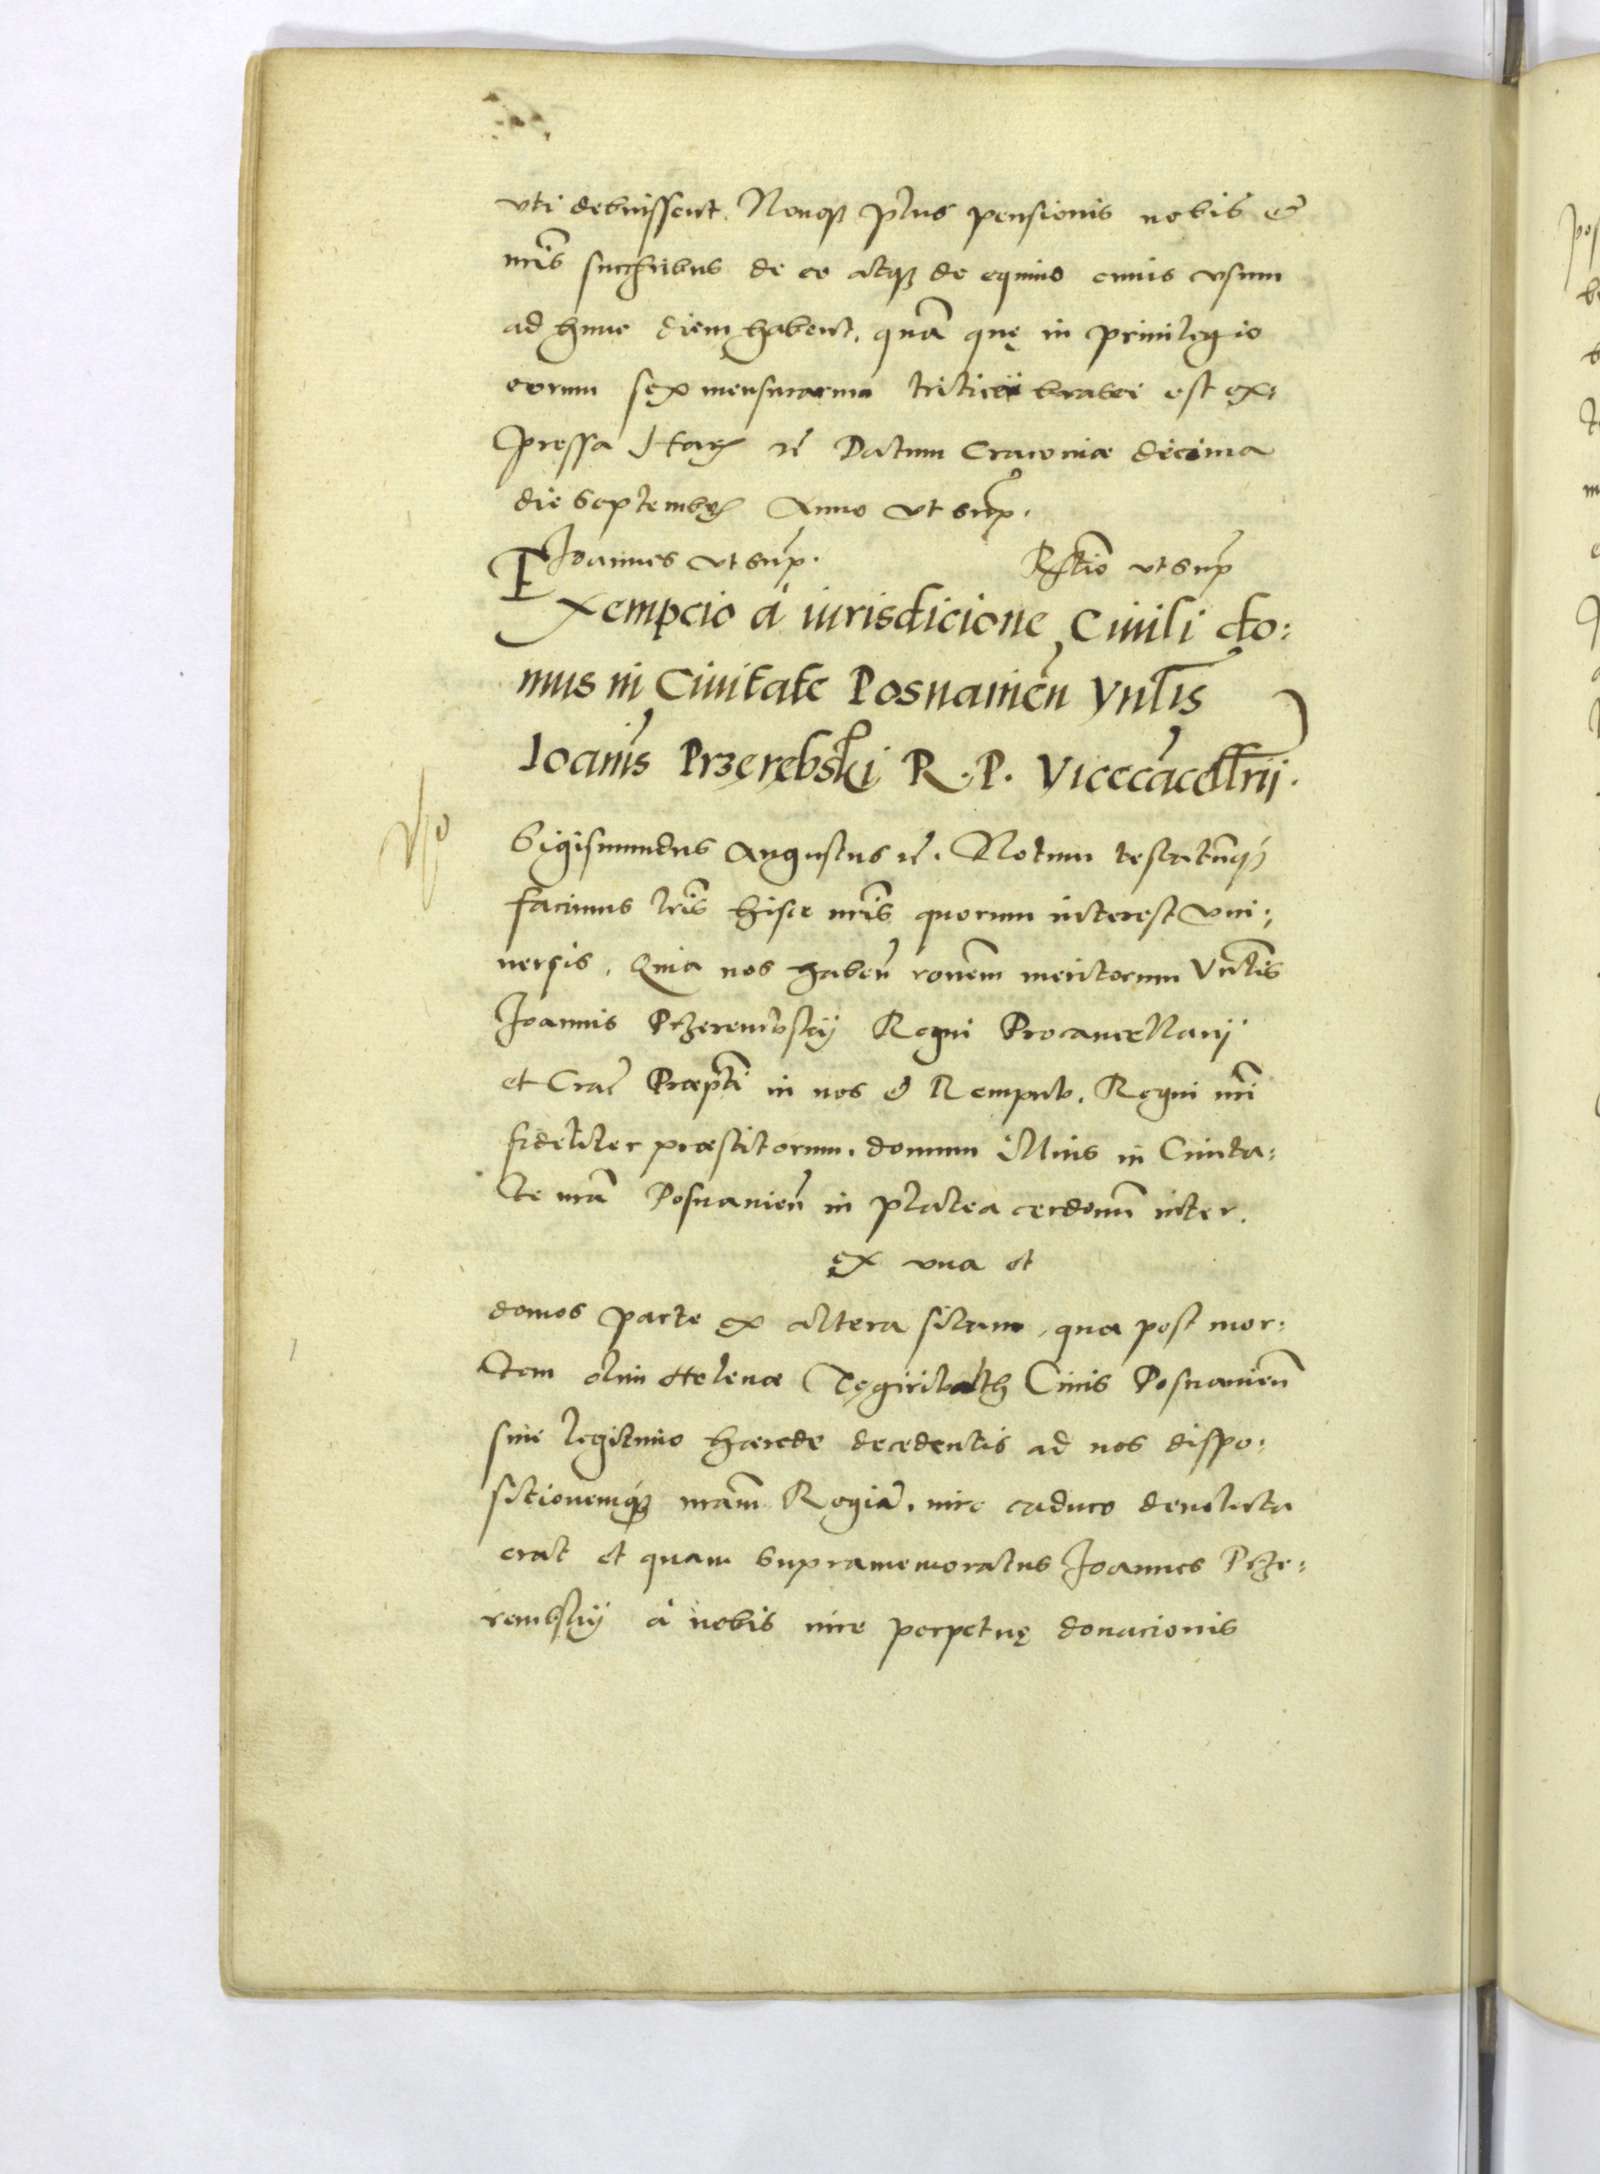 vti debuissent. Neuoq3 plus pensionis nobis et
nr̃is succr̃ibus de eo atq3 de equius omnis vsum
ad hunc diem habent, quã quę in priuilegio
eorum sex mensurarum triticei brasei est ex:
pressa Har3 rc̃ Datum Cracouiæ decima
die Septembr̃ Anno vt sup̃.
Joannes vt sup̃. R̃lãtio vt sup̃
Exempcio á iurisdicione Ciuili do:
mus in Ciuitate Posnanień Vnl̃is
Joañis Przerębski R. P. Vicecãcellr̃ii.
Sigismundus Augustus rc̃. Notum testatumq3
facimus lr̃is hisce nr̃is quorum interest vni:
uersis. Quia nos habeñ roñem meritorum Vnl̃tis
Joannis Przerembskÿ Regni Procancellarÿ
et Crac̃ Præpti in nos et Rempub. Regni nr̃i
fideliter præstitorum, domum illius in Ciuita:
te nr̃a Posnanieñ in platea cerdonũ inter.
ex vna et
domos parte ex altera sitam, qua post mor:
tem olim Helenæ Tęgiribalth Ciuis Posnanieñ
sine legitimo hærede decedentis ad nos dispo:
sitionemq3 nr̃am Regiã, iure caduco deuoluta
erat et quam supramemoratus Joannes Prze:
rembskÿ á nobis iure perpetuę donacionis